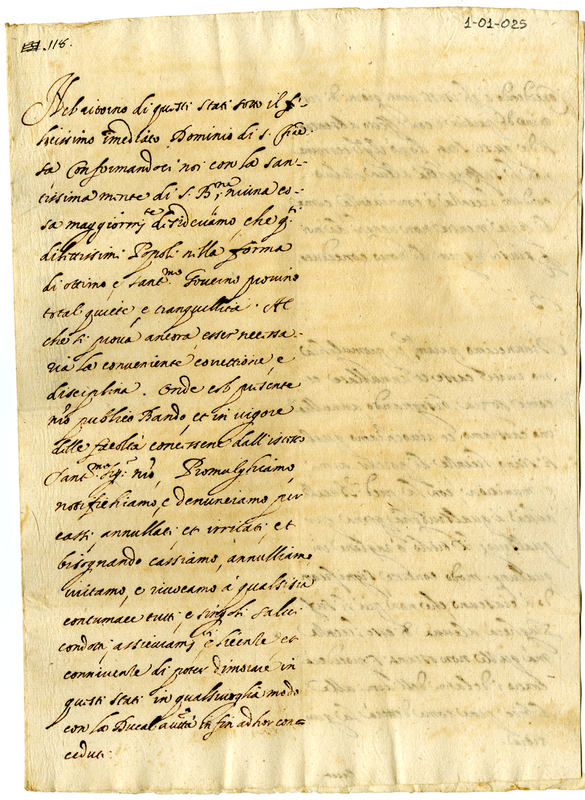 1-01-025
118.
Nel ritorno di questi stati sotto il fe-
licissimo imediato Dominio di S. Chie-
sa conformandoci noi con la san-
tissima mente di S. Bne, niuna co-
sa maggiormte desideriamo che qti
dilettissimi Popoli nella forma
di ottimo e santmo Governo provino
total quiete, e tranquillità. Al
che si prova ancora esser necessa-
ria la conveniente correttione, e
disciplina. Onde col presente
nro publico Bando, et in vigore
delle facoltà concesseci dall'istesso
Santmo Sigr nro, Promulghiamo,
notifichiamo, e denuntiamo per
cassi, annullati, et irritati, et
bisognando cassiamo, annulliamo,
irritamo, e rivocamo à qualsisia
contumace tutti, e singoli salvi
condotti, assicuramti, e licenze et
connivenze di poter dimorare in
questi stati in qualsivoglia modo
con la Ducal autta in fin ad hor con=
ceduti.